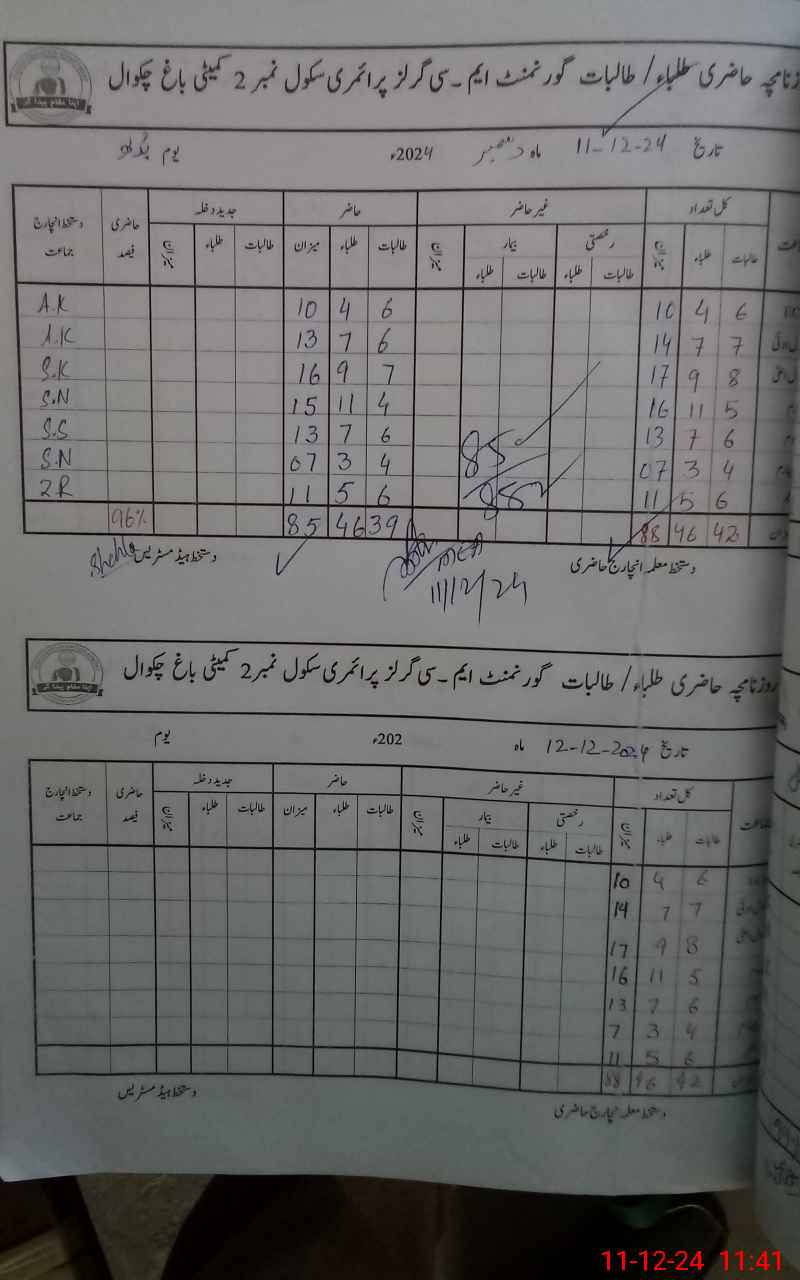 روزنامچہ حاضری طلباء / طالبات گورنمنٹ ایم۔سی گرلز پرائمری سکول نمبر 2 کمیٹی باغ چکوال
تاریخ 11-12-24 ماہ دسمبر 2024ء یوم بُدھ
کل تعداد غیر حاضر حاضر جدید داخلہ حاضری فیصد دستخط انچارج جماعت
رخصتی بیمار میزان
طالبات طلباء میزان طالبات طلباء طالبات طلباء میزان طالبات طلباء میزان طالبات طلباء میزان
6 4 10 6 4 10 A.K
7 7 14 6 7 13 A.K
8 9 17 7 9 16 S.K
5 11 16 4 11 15 S.N
6 7 13 6 7 13 S.S
4 3 07 4 3 07 S.N
6 5 11 6 5 11 ZR
42 46 88 39 46 85 96%
85
88
دستخط معلمہ انچارج حاضری دستخط ہیڈ مسٹریس Shehla
11/12/24
روزنامچہ حاضری طلباء / طالبات گورنمنٹ ایم۔سی گرلز پرائمری سکول نمبر 2 کمیٹی باغ چکوال
تاریخ 12-12-2024 ماہ 202ء یوم
جماعت کل تعداد غیر حاضر حاضر جدید داخلہ حاضری فیصد دستخط انچارج جماعت
رخصتی بیمار میزان
طالبات طلباء میزان طالبات طلباء طالبات طلباء میزان طالبات طلباء میزان طالبات طلباء میزان
6 4 10
7 7 14
8 9 17
5 11 16
6 7 13
4 3 7
6 5 11
42 46 88
دستخط معلمہ انچارج حاضری دستخط ہیڈ مسٹریس
11-12-24 11:41